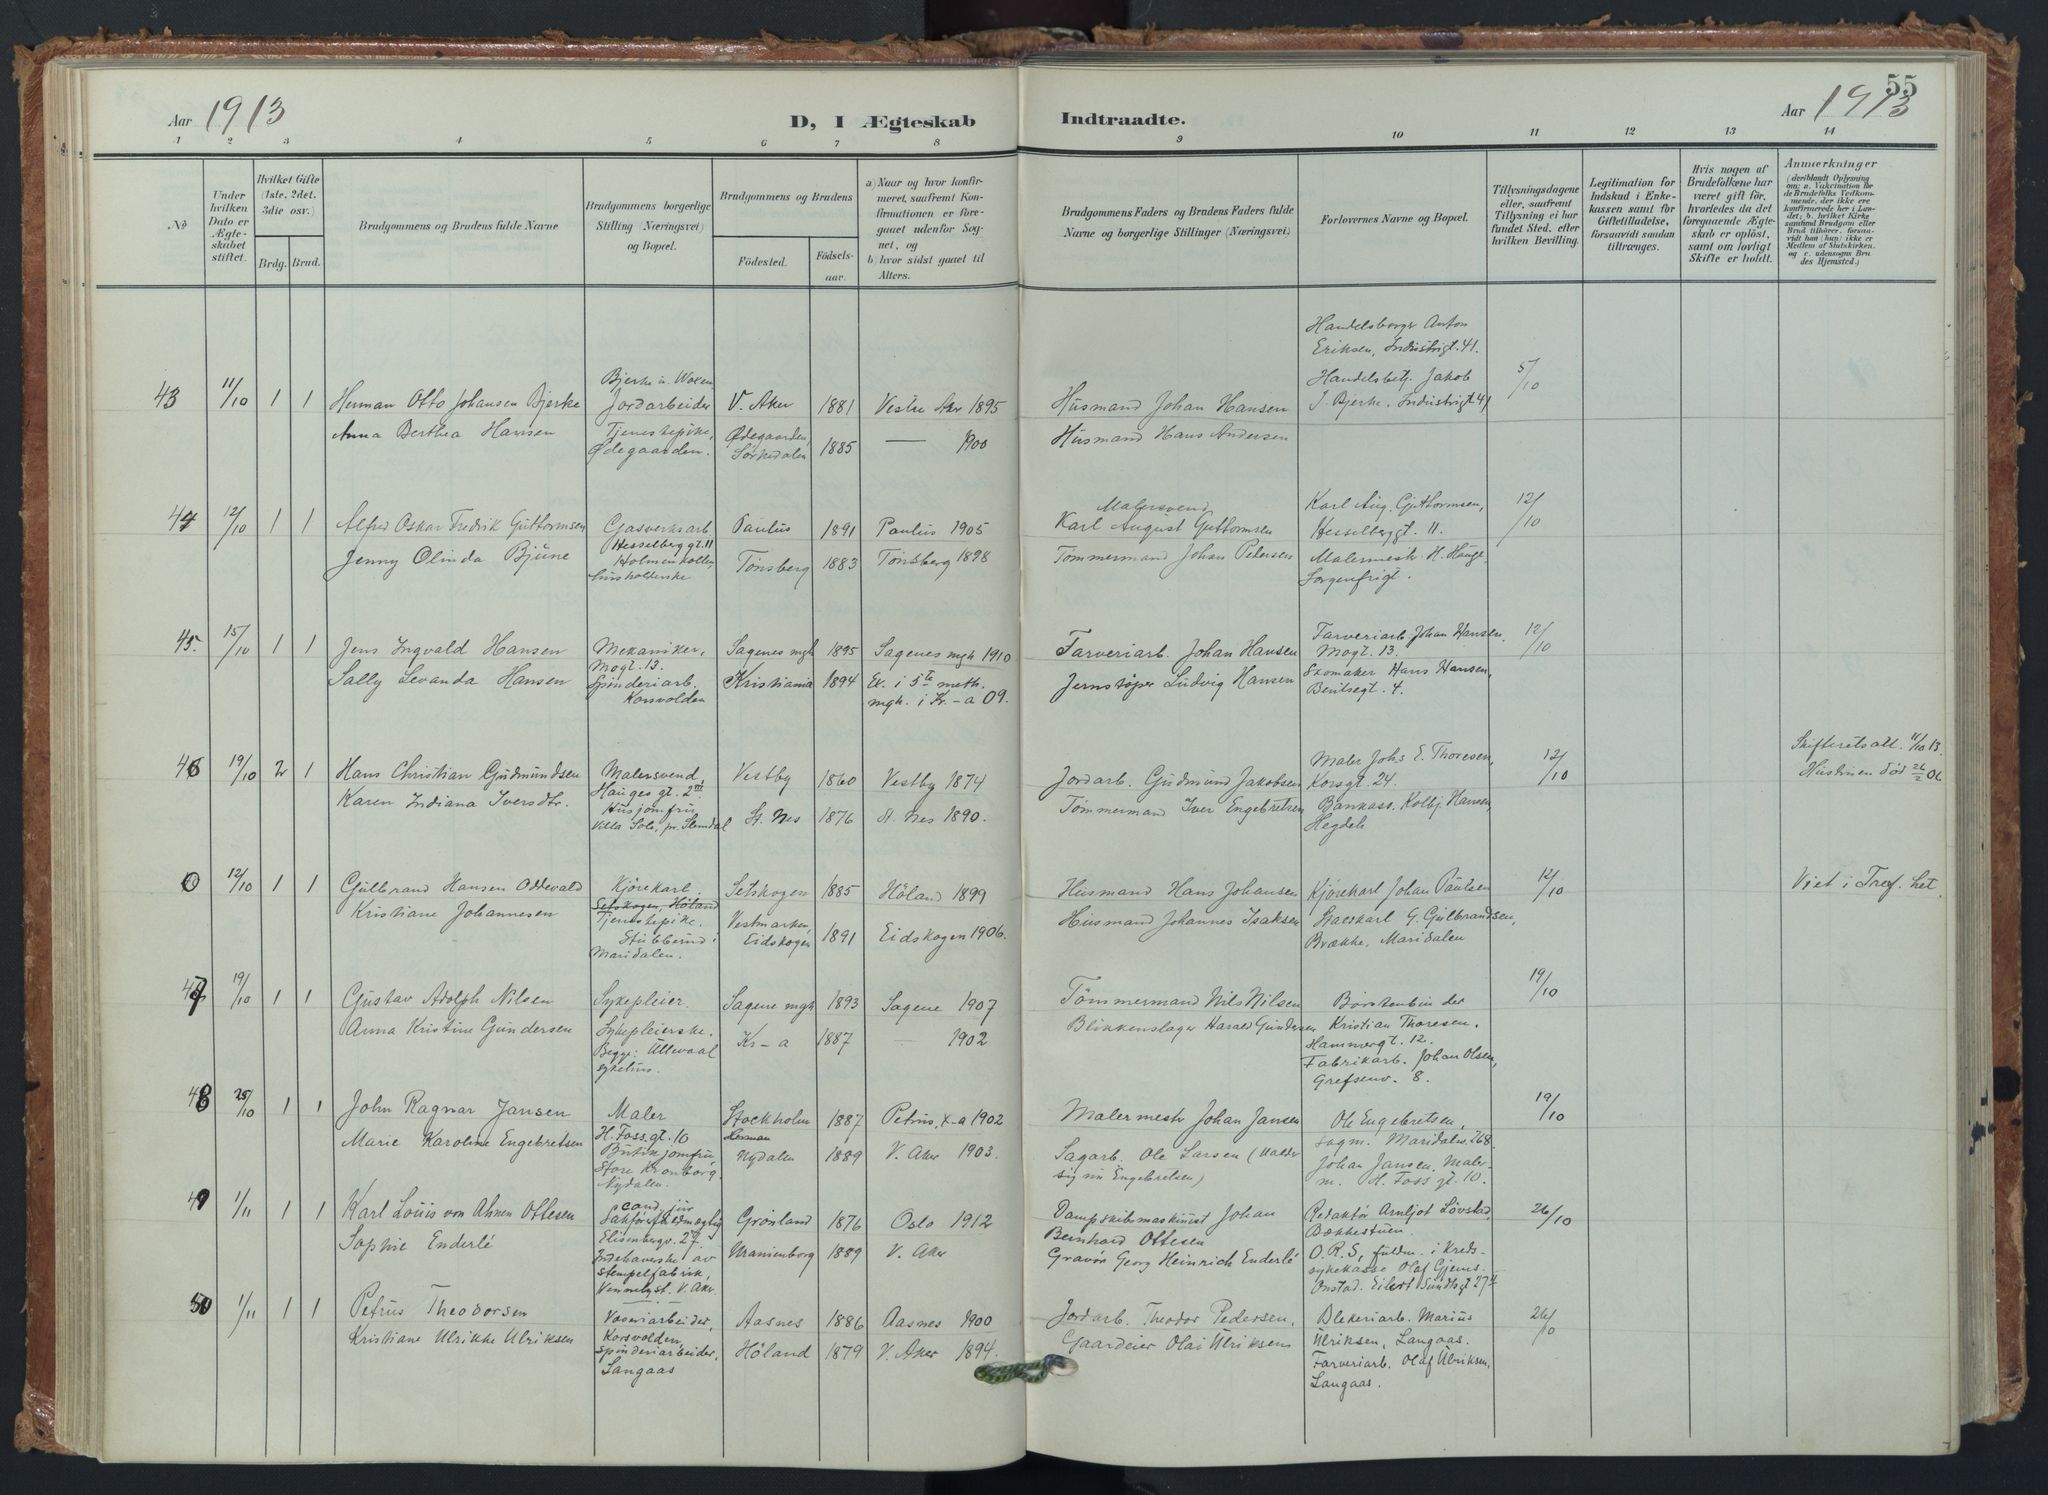 Aar 1913
D, I Ægteskab
Indtraadte.
55
Aar 1913
1 2 3 4 5 6 7 8 9 10 11 12 13 14
No
Under hvilken Dato er Ægteskabet stiftet.
Hvilket Gifte (1ste, 2det, 3die osv.)
Brdg. Brud.
Brudgommens og Brudens fulde Navne
Brudgommens borgerlige Stilling (Næringsvei) og Bopæl.
Brudgommens og Brudens
Födested.
Födselsaar.
a) Naar og hvor konfirmeret, saafremt Konfirmationen er foregaaet udenfor Sognet, og
b) hvor sidst gaaet til Alters.
Brudgommens Faders og Brudens Faders fulde Navne og borgerlige Stillinger (Næringsvei)
Forlovernes Navne og Bopæl.
Tillysningsdagene eller, saafremt Tillysning ei har fundet Sted, efter hvilken Bevilling.
Legitimation for Indskud i Enkekassen samt for Giftetilladelse, forsaavidt saadan tiltrænges.
Hvis nogen af Brudefolkene har været gift för, hvorledes da det foregaaende Ægteskab er oplöst, samt om lovligt Skifte er holdt.
Anmærkninger
(deriblandt Oplysning om: a. Vakcination for de Brudefolks Vedkommende, der ikke ere konfirmerede her i Landet; b. hvilket Kirkesamfund Brudgom eller Brud tilhörer, forsaavidt han (hun) ikke er Medlem af Statskirken, og c. udensogns Brudes Hjemsted.)
43 11/10 1 1 Herman Otto Johansen Bjerke
Bjerke u. Voxen Jordarbeider
V. Aker 1881 Vestre Aker 1895
Husmand Johan Hansen
Handelsborger Anton
Eriksen, Industrigt. 41.
Handelsbetj. Jakob
J. Bjerke, Industrigt. 41
5/10
Anna Berthea Hansen
Tjenestepike, Ødegaarden.
Ødegaarden, Sørkedalen 1885 — 1900
Husmand Hans Andersen
44 12/10 1 1 Alfred Oskar Fredrik Guttormsen
Gasverksarb. Hesselberggt. 11
Paulus 1891 Paulus 1905
Malersvend Karl August Guttormsen
Karl Aug. Guttormsen,
Hesselberggt. 11.
12/10
Jenny Olinda Bjune
Holmenkollen, husholderske
Tønsberg 1883 Tønsberg 1898
Tømmermand Johan Pedersen
Malermestr. H. Hauge
Sorgenfrigt.
45. 15/10 1 1 Jens Ingvald Hansen
Mekaniker, Mogt. 13.
Sagenes mgh 1895 Sagenes mgh 1910
Farveriarb. Johan Hansen
Farveriarb. Johan Hansen,
Mogt. 13.
12/10
Sally Levanda Hansen
Spinderiarb. Korsvolden
Kristiania 1894 Ex. i 5te meth. mgh. i Kr-a 09.
Jernstøper Ludvig Hansen
Skomaker Hans Hansen,
Bentsegt. 4.
46 19/10 2 1 Hans Christian Gudmundsen
Malersvend, Hauges gt. 2III
Vestby 1860 Vestby 1874
Jordarb. Gudmund Jakobsen
Maler Johs E. Thoresen,
Korsgt. 24.
12/10
Skifteretsatt. 11/10 13.
Hustruen død 26/2 06
Karen Indiana Iversdtr.
Husjomfru Villa Solb., pr. Slemdal
St. Nes 1876 St. Nes 1890.
Tømmermand Iver Engebretsen
Bankass. Kolbj. Hansen,
Hegdeh
0 12/10 1 1 Gulbrand Hansen Oddevald
Kjørekarl. Setskogen, Høland
Setskogen 1885 Höland 1899
Husmand Hans Johansen
Kjørekarl Johan Paulsen
12/10
Viet i Tref. het
Kristiane Johannesen
Tjenestepike. Stubberud i Maridalen.
Vestmarken, Eidskogen 1891 Eidskogen 1906.
Husmand Johannes Isaksen
Staldkarl G. Gulbrandsen,
Brække, Maridalen
47 19/10 1 1 Gustav Adolph Nilsen
Sykepleier.
Sagene mgh 1893 Sagene 1907
Tömmermand Nils Nilsen
Børstenbinder
Kristian Thoresen.
Hammergt. 12.
19/10
Anna Kristine Gundersen
Sykepleierske. Begge: Ullevaal sykehus.
Kr-a 1887 — 1902
Blikkenslager Harald Gundersen
Fabrikarb. Johan Olsen,
Grefsenv. 8.
48 25/10 1 1 John Ragnar Jansen
Maler H. Foss gt. 10
Stockholm 1887 Petrus, K-a 1902
Malermestr Johan Jansen
Ole Engebretsen,
sagm. Maridalsv. 268
19/10
Marie Karoline Engebretsen
Butikjomfru, Store Kronborg, Nydalen.
Nydalen 1889 V. Aker 1903.
Sagarb. Ole Larsen (kalder sig nu Engebretsen)
Johan Jansen, Maler-
m. H. Foss gt. 10.
49 1/11 1 1 Karl Louis von Ahnen Ottesen
cand. jur Sakførerfuldmægtig Elisenbergv. 27
Grønland 1876 Oslo 1912
Dampskibsmaskinist Johan Bernhard Ottesen
Redaktør Arnljot Løvstad,
Bækkestuen
26/10
Sophie Enderlé
Indehaverske av stempelfabrik, Vennelyst. V. Aker
Uranienborg 1889 V. Aker
Gravør Georg Heinrich Enderlé
O.R.S, fuldm. i Kreds-
sykekasse Olaf Gjems-
Onstad. Eilert Sundtsgt 27
50 1/11 1 1 Petrus Theodorsen
Væveriarbeider, Korsvolden
Aasnes 1886 Aasnes 1900
Jordarb. Theodor Pedersen,
Blekeriarb. Marius
Ulriksen, Langaas.
26/10
Kristiane Ulrikke Ulriksen
spinderiarbeider, Langaas
Höland 1879 V. Aker 1894.
Gaardeier Olai Ulriksen
Farveriarb. Olaf Ulriksen,
Langaas.